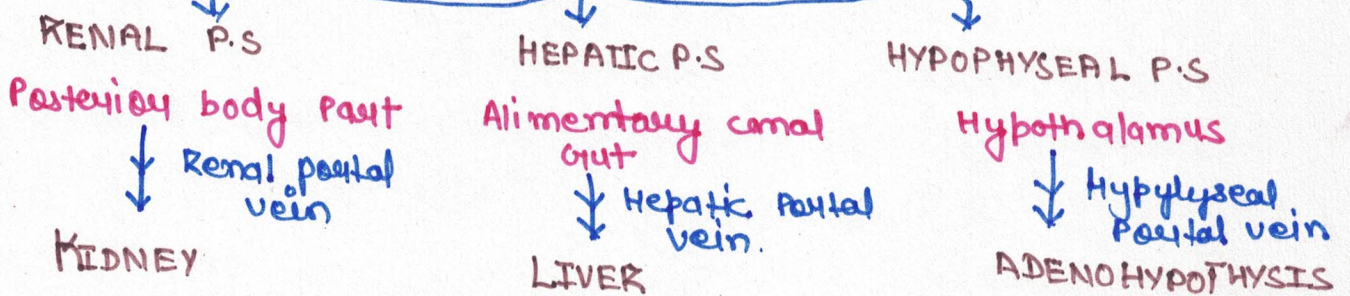 RENAL P.S
Posterior body part
Renal portal
vein
KIDNEY
HEPATIC P.S
Alimentary canal
Gut
Hepatic Portal
vein.
LIVER
HYPOPHYSEAL P.S
Hypothalamus
Hypylyseal
Portal vein
ADENOHYPOTHYSIS